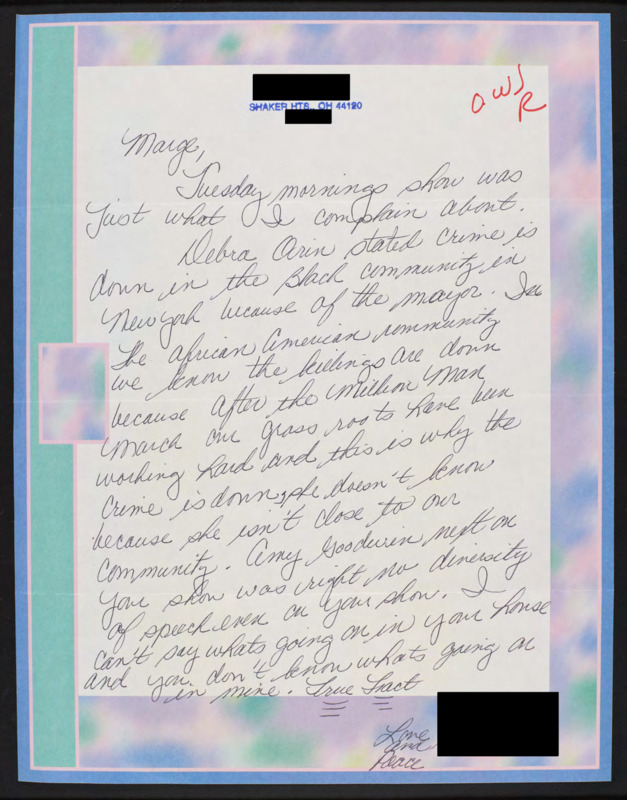 SHAKER HTS., OH 44120
OWS
R
Marge,
Tuesday mornings show was
just what I complain about.
Debra Orin stated crime is
down in the Black community in
New York because of the mayor. In
the African American community
we know the killings are down
because after the Million Man
March our grass roots have been
working hard and this is why the
crime is down, she doesn't know
because she isn't close to our
community. Amy Goodwin next on
your show was right no diversity
of speech even on your show. I
can't say whats going on in your house
and you don't know whats going on
in mine. True Fact
Love
and
Peace